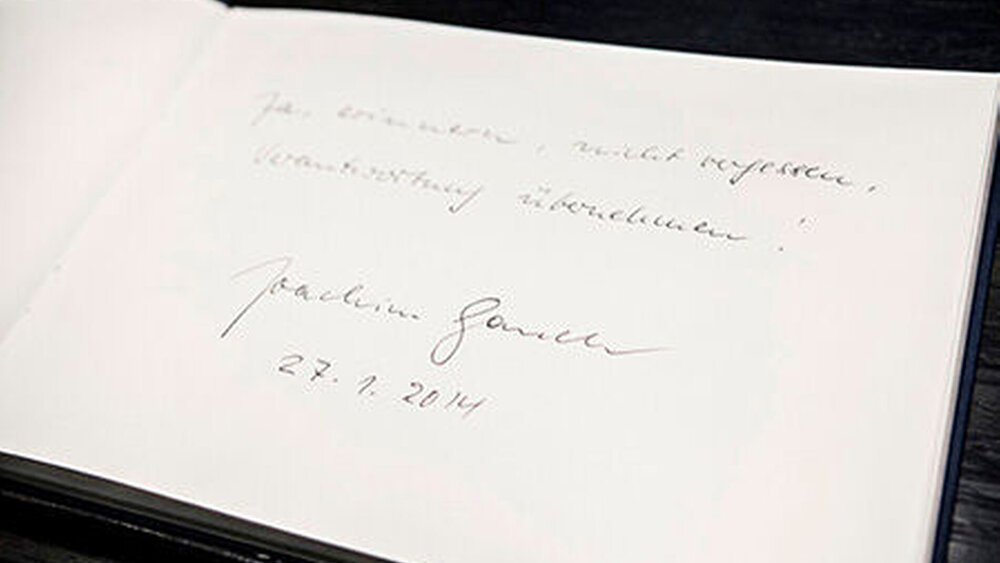 Ja, erinnern, nicht vergessen,
Verantwortung übernehmen!
Joachim Gauck
27.1.2014